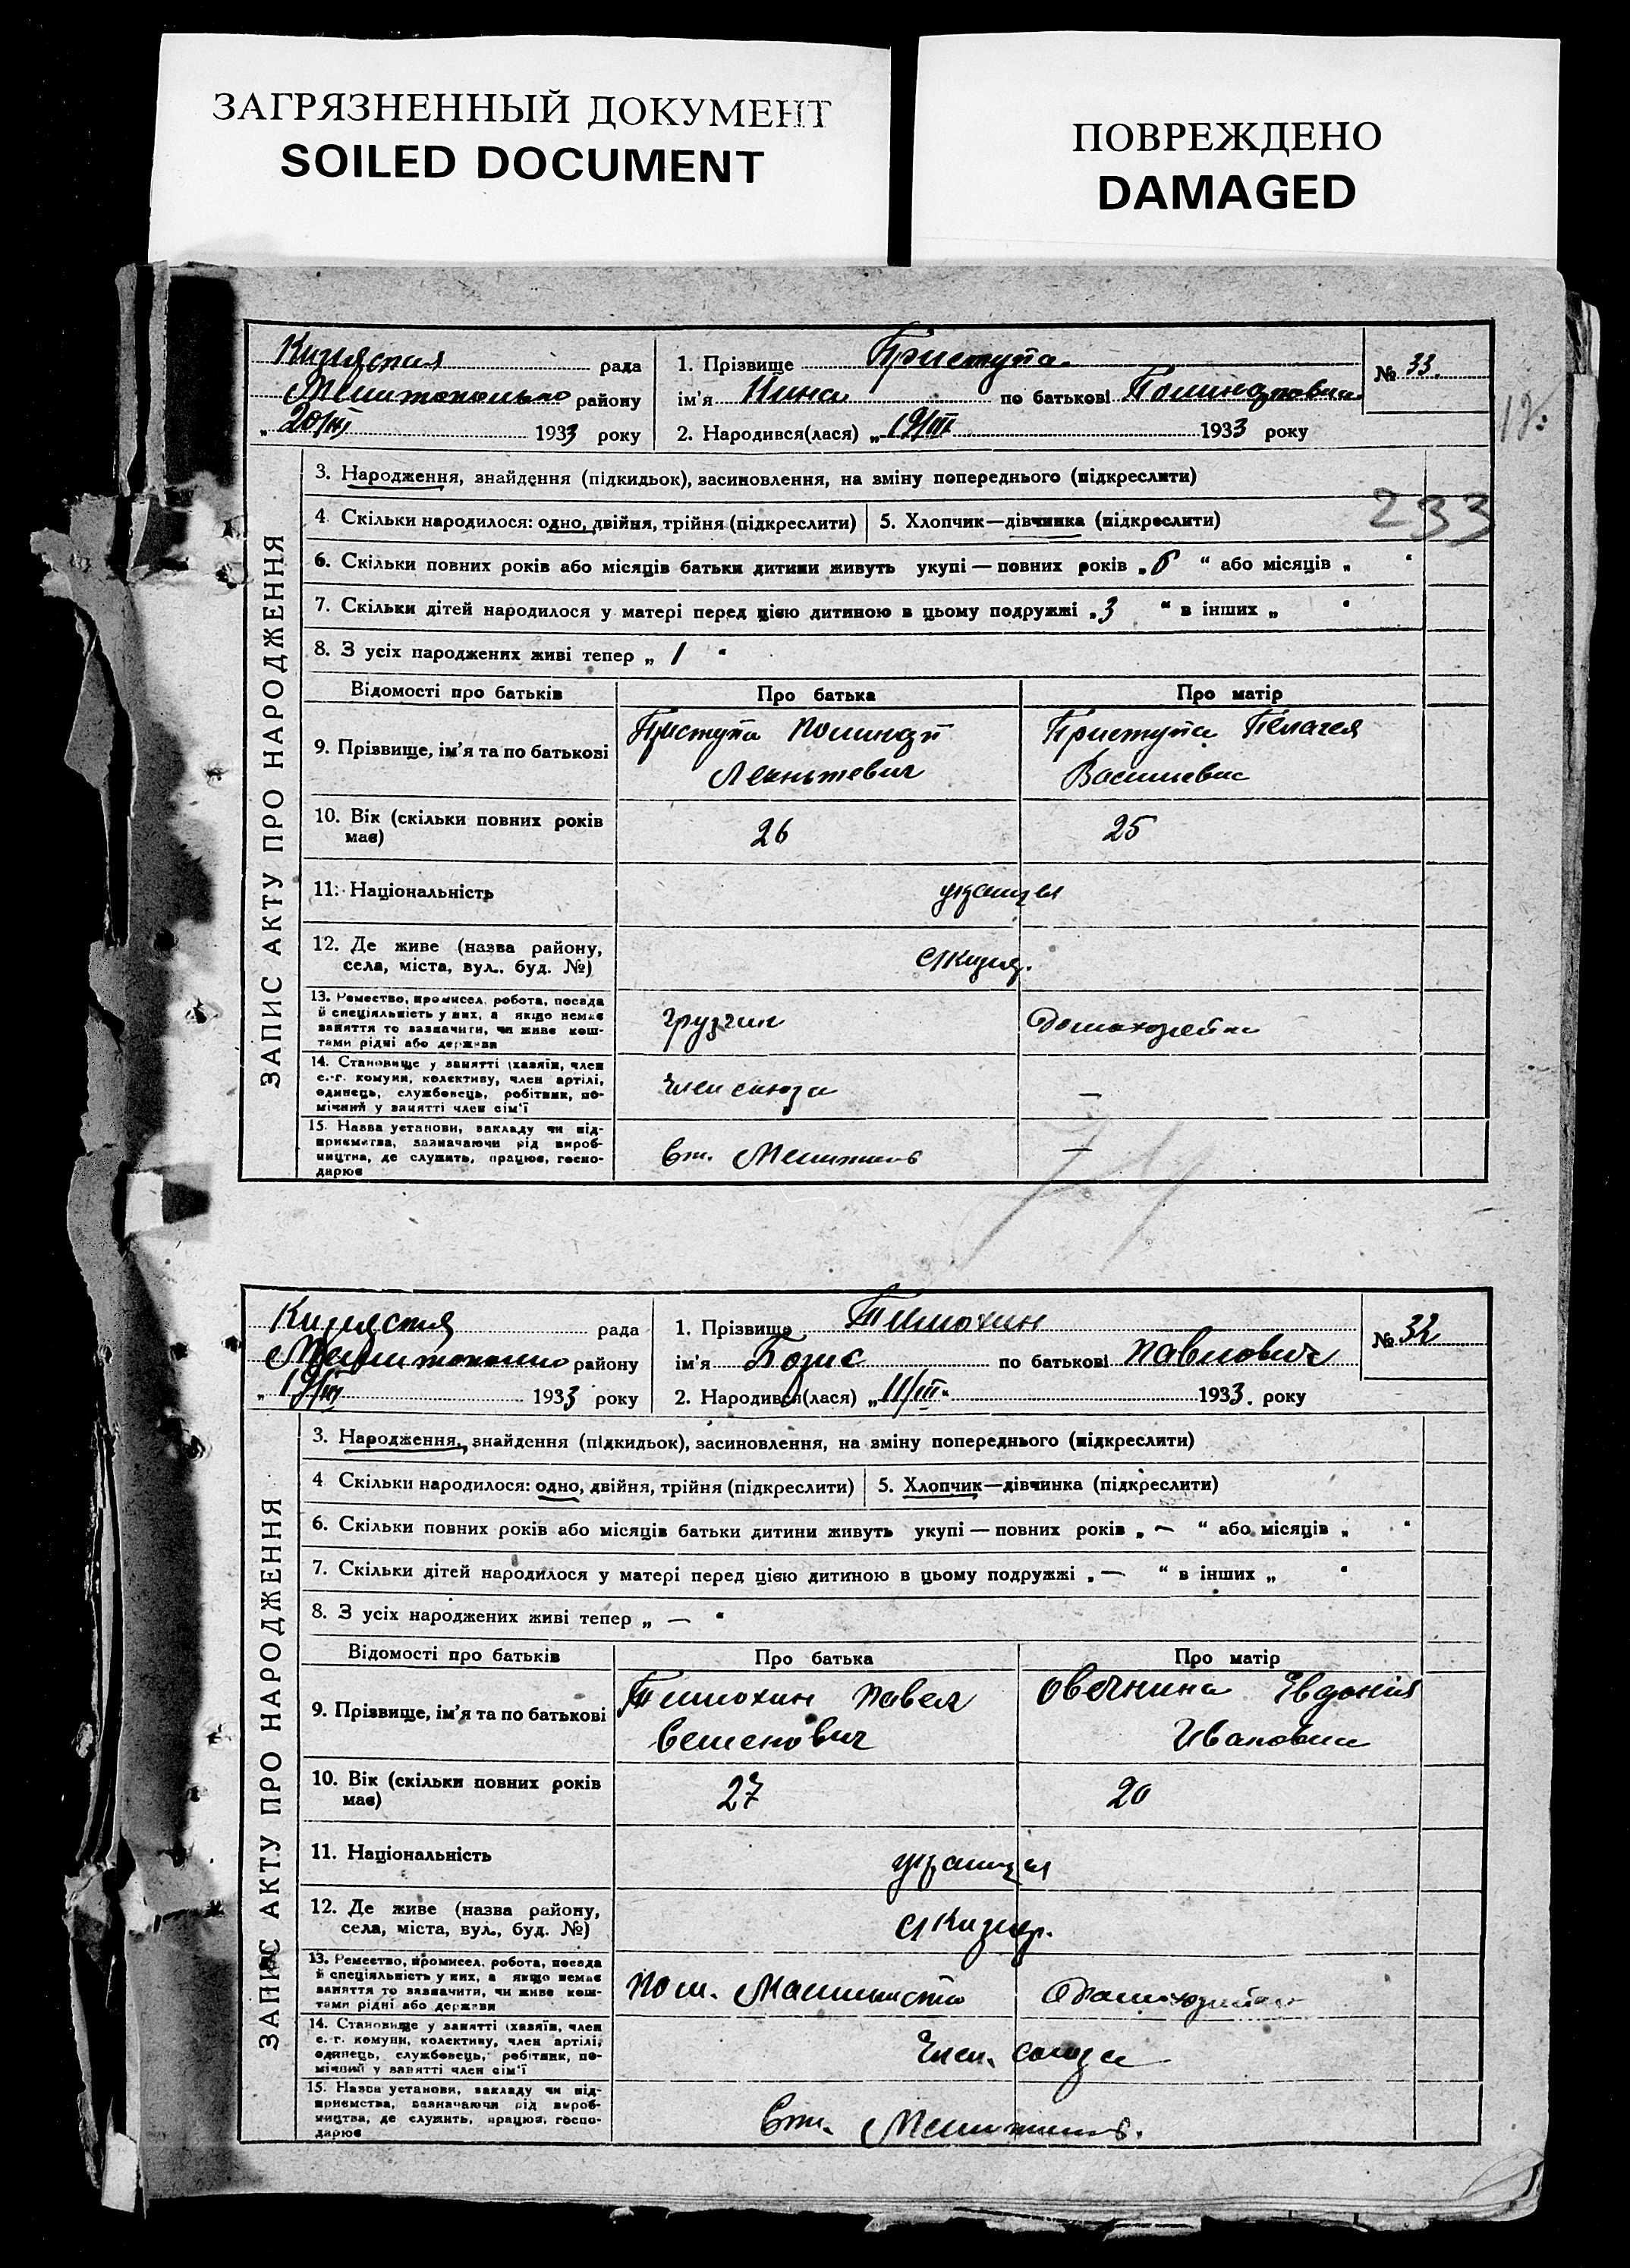 ЗАГРЯЗНЕННЫЙ ДОКУМЕНТ
SOILED DOCUMENT
ПОВРЕЖДЕНО
DAMAGED
рада
району
20/III 1933 року
1. Прізвище Приступа
ім'я Нина по батькові
2. Народився(лася) „19/III 1933 року
№ 33.
233
ЗАПИС АКТУ ПРО НАРОДЖЕННЯ
3. Народження, знайдення (підкидьок), засиновлення, на зміну попереднього (підкреслити)
4 Скільки народилося: одно, двійня, трійня (підкреслити) 5. Хлопчик—дівчинка (підкреслити)
6. Скільки повних років або місяців батьки дитини живуть укупі — повних років „6 “ або місяців „ “
7. Скільки дітей народилося у матері перед цією дитиною в цьому подружжі „3 “ в інших „ “
8. З усіх народжених живі тепер „ 1 “
Відомості про батьків Про батька Про матір
9. Прізвище, ім'я та по батькові
Приступа
Приступа Пелагея
10. Вік (скільки повних років
має)
26 25
11. Національність
12. Де живе (назва району,
села, міста, вул., буд. №)
13. Ремество, промисел, робота, посада
й спеціяльність у них, а якщо немає
заняття то зазначити, чи живе кош-
тами рідні або держави
грузчик Домохозяйка
14. Становище у занятті (хазяїн, член
с.-г. комуни, колективу, член артілі,
одинець, службовець, робітник, по-
мічний у занятті член сім'ї
член союза —
15. Назва установи, закладу чи під-
приємства, зазначаючи рід вироб-
ництва, де служить, працює, госпо-
дарює
—
74
рада
району
19/III 1933 року
1. Прізвище Тимохин
ім'я Борис по батькові Павлович
2. Народився(лася) „11/III 1933. року
№ 32
ЗАПИС АКТУ ПРО НАРОДЖЕННЯ
3. Народження, знайдення (підкидьок), засиновлення, на зміну попереднього (підкреслити)
4 Скільки народилося: одно, двійня, трійня (підкреслити) 5. Хлопчик—дівчинка (підкреслити)
6. Скільки повних років або місяців батьки дитини живуть укупі — повних років „ — “ або місяців „ “
7. Скільки дітей народилося у матері перед цією дитиною в цьому подружжі „ — “ в інших „ “
8. З усіх народжених живі тепер „ — “
Відомості про батьків Про батька Про матір
9. Прізвище, ім'я та по батькові
Тимохин Павел
Семенович
Овечкина Евдокия
Ивановна
10. Вік (скільки повних років
має)
27 20
11. Національність
12. Де живе (назва району,
села, міста, вул., буд. №)
13. Ремество, промисел, робота, посада
й спеціяльність у них, а якщо немає
заняття то зазначити, чи живе кош-
тами рідні або держави
пом. Машиниста Домохозяйка
14. Становище у занятті (хазяїн, член
с.-г. комуни, колективу, член артілі,
одинець, службовець, робітник, по-
мічний у занятті член сім'ї
член. союза
15. Назва установи, закладу чи під-
приємства, зазначаючи рід вироб-
ництва, де служить, працює, госпо-
дарює